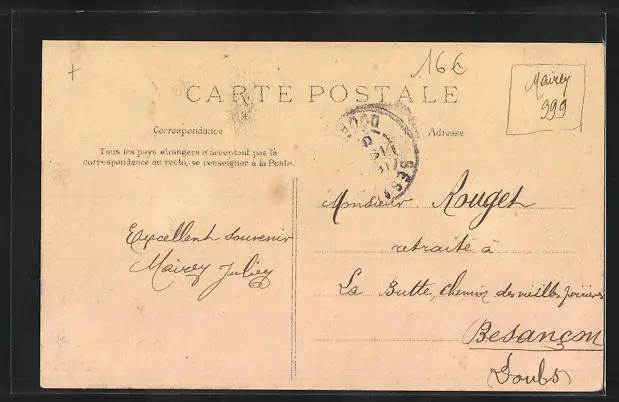 16€
Mairey
999
CARTE POSTALE
Correspondance
Adresse
Tous les pays étrangers n'acceptant pas la
correspondance au recto, se renseigner à la Poste.
DOUBS
Monsieur Rouget
retraité à
La Butte, chemin des vieilles perrières
Besançon
Doubs
Excellent souvenir
Mairey Juliey